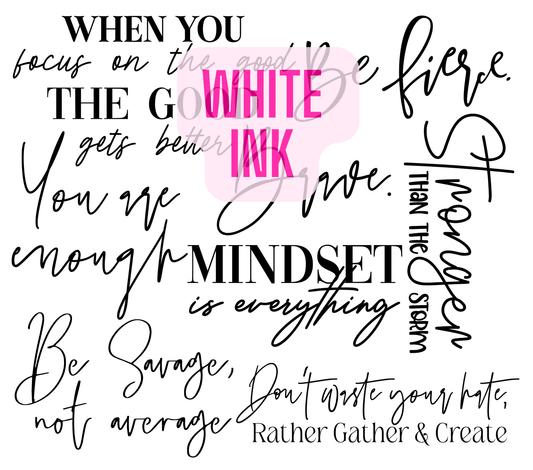 WHEN YOU
focus on the good
THE GOOD
gets better
WHITE
INK
Be fierce.
Be
Brave.
You are
enough
Stronger
THAN THE STORM
MINDSET
is everything
Be Savage,
not average
Don't waste your hate,
Rather Gather & Create